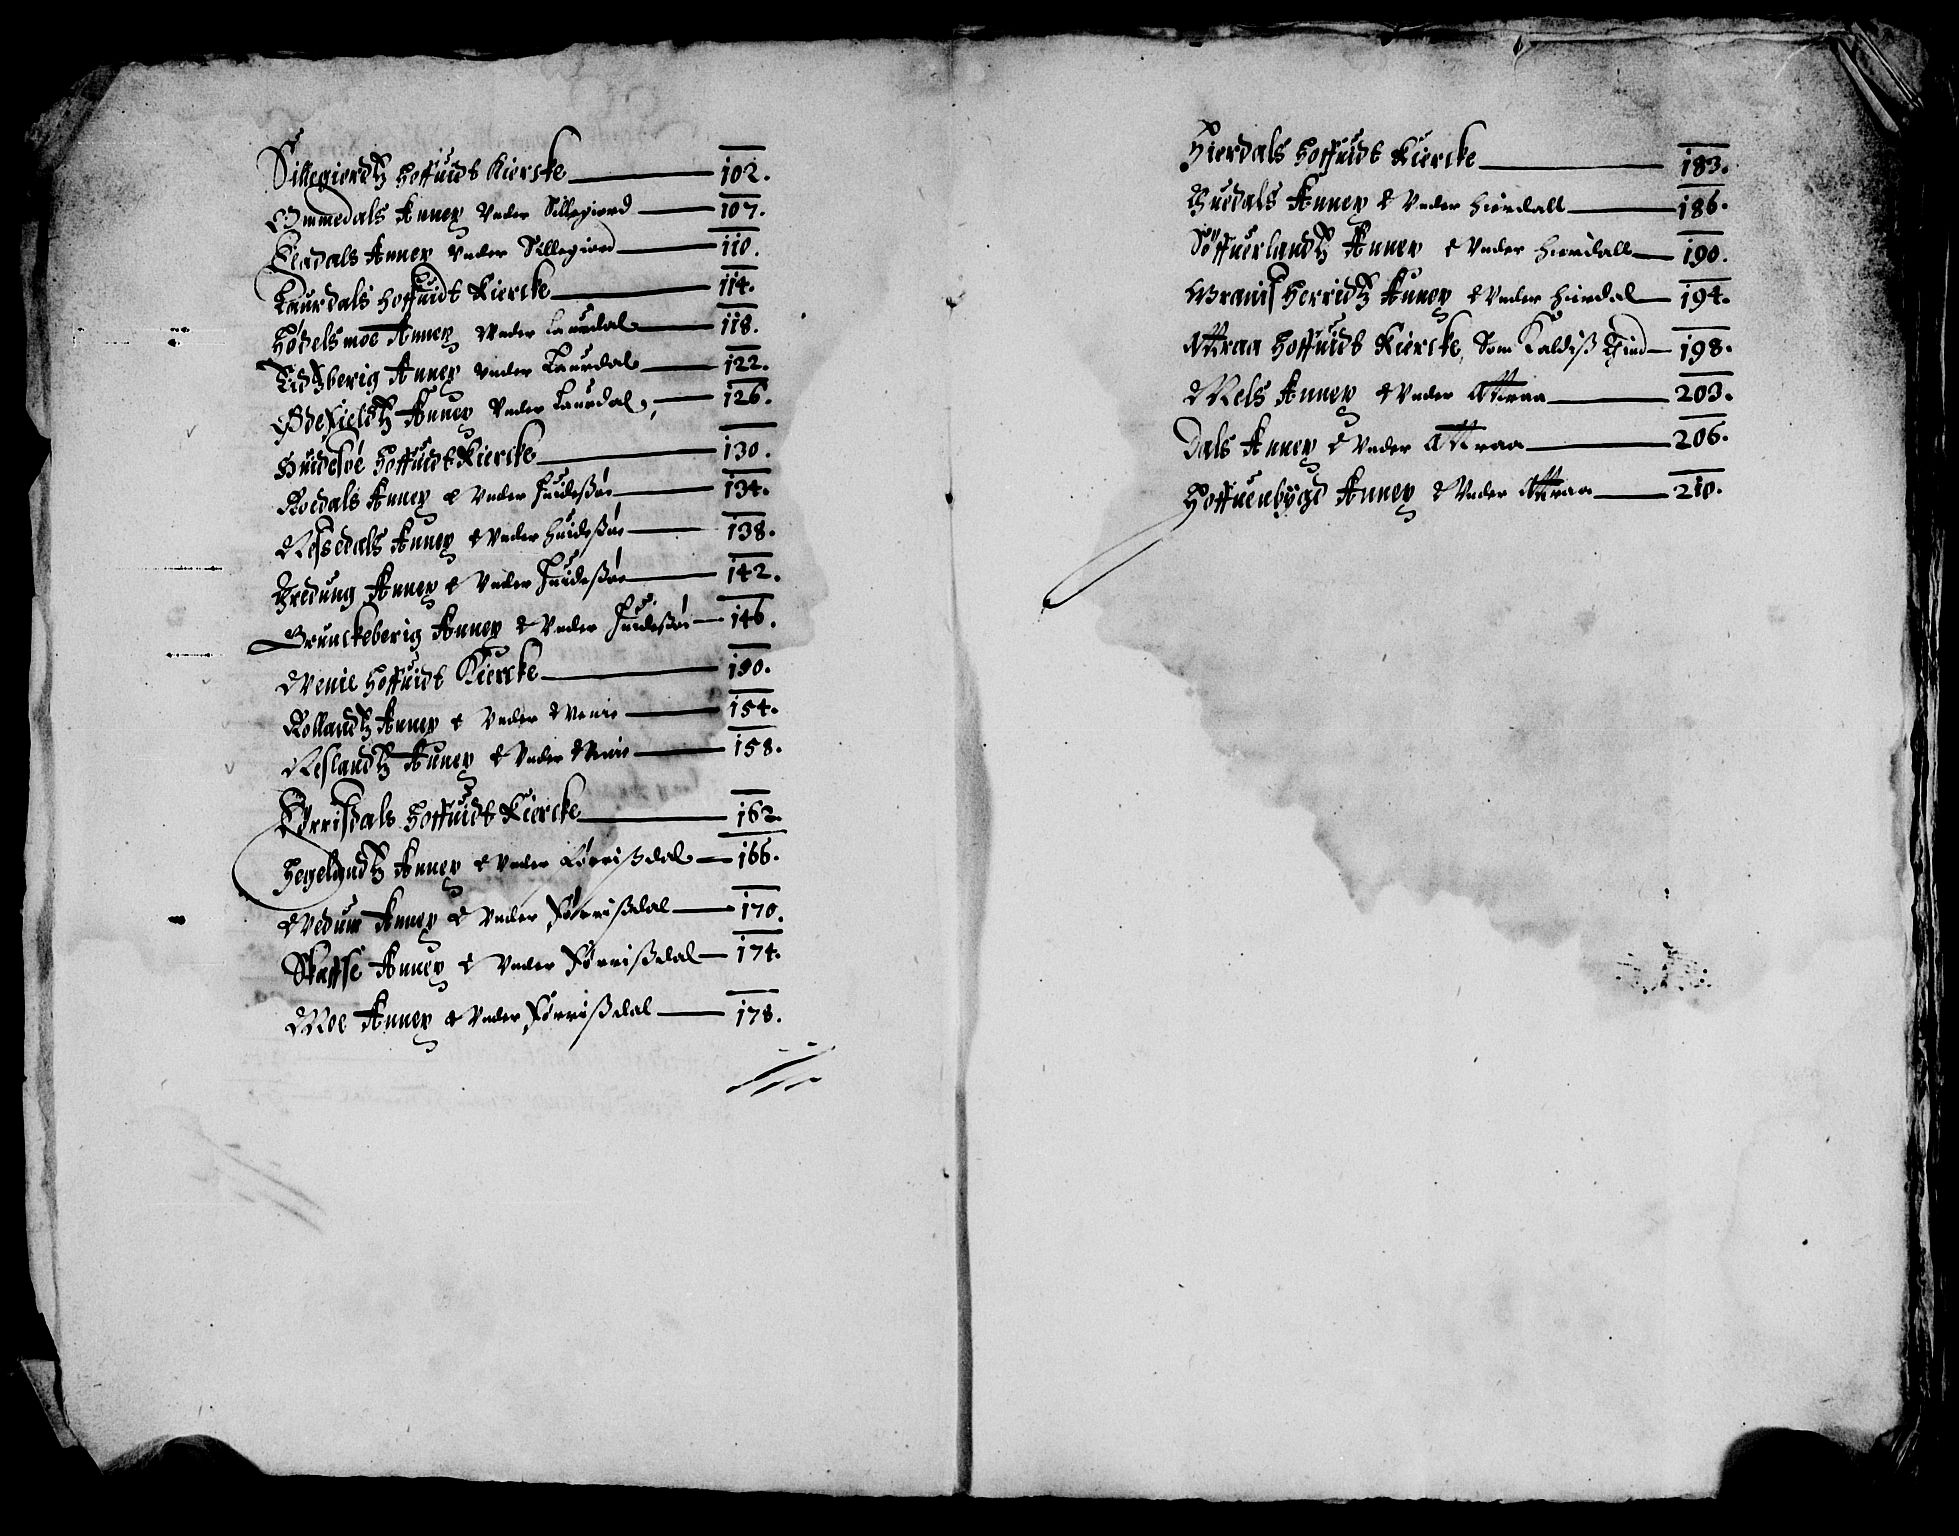 Sillegiordtz Hoffuidt Kiercke 102.
Ommedals Annex Vnder Sillegiord 107.
Eladals Annex Vnder Sillegiord 110.
Laurdals Hoffuidt Kiercke 114.
Hódelsmoe Annex Vnder Laurdal 118.
Eidtzberig Annex Vnder Laurdal 122.
Ødefieldtz Annex Vnder Laurdal, 126.
Huidesóe Hoffuidt Kiercke 130.
Roedals Annex Vnder Huidesßóe 134.
Nessedals Annex Vnder Huideßóe 138.
Bredung Annex Vnder Huideßóe 142.
Brunckeberig Annex Vnder Huideßói 146.
Wenie Hoffuidt Kiercke 190.
Rollandtz Annex Vnder Wenie 154.
Neslandtz Annex Vnder Wenie 158.
Förrisdals Hoffuidt Kiercke 162.
Hegelandtz Annex Vnder Förrißdal 166.
Vedum Annex Vnder Förrißdal 170.
Skaffse Annex Vnder Förrißdal 174.
Moe Annex Vnder Förrißdal 178.
Hierdals Hoffuidt Kiercke 183.
Thuedals Annex Vnder Hierdall 186.
Söffuerlandtz Annex Vnder Hierdall 190.
Granisherridtz Annex Vnder Hierdal 194.
Attraa Hoffuidt Kiercke, Som Kaldiß Thind 198.
Mels Annex Vnder Attraa 203.
Dals Annex Vnder Attraa 206.
Hoffuenbygd Annex Vnder Attraa 210.